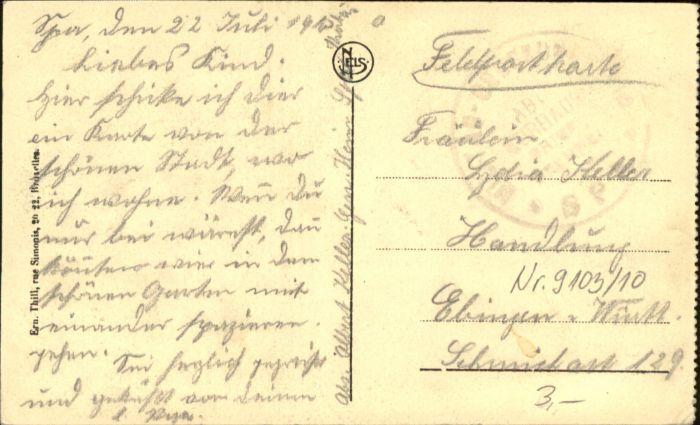 Spa, den 22 Juli 191
Liebes Kind.
Hier schicke ich Dier
ein Karte von der
schönen Stadt, wo
ich wohne. Wen Du
nur bei wärest, dan
könten wier in dem
schönen Garten mit
einander spazieren
gehen. Sei herzlich gegrüßt
und geküßt von Deinem
Abs. Albert Heller
Ern. Thill, rue Simonis, 20-22, Bruxelles.
NELS
Feldpostkarte
Fräulein
Lydia Heller
Handlung
Nr. 9103/10
Ebingen Württ.
Schmidt 129.
3,-
SPA